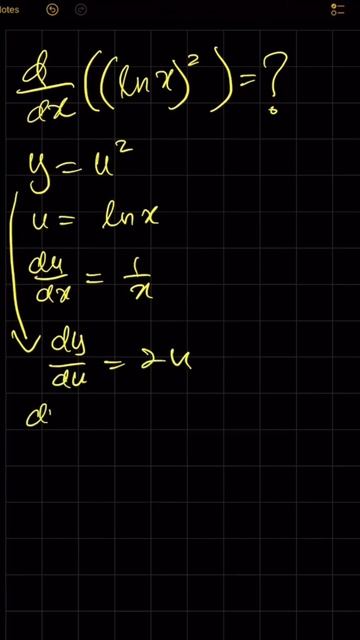 Notes
d/dx((ln x)²) = ?
y = u²
u = ln x
du/dx = 1/x
dy/du = 2u
d